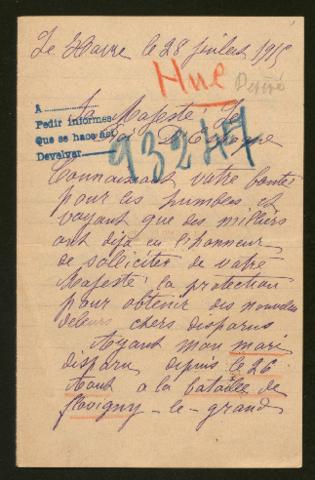 Le Havre le 28 juillet 1915
Hue
Desiré
A
Pedir informes
Que se hace así
Devolver
93247
Sa Majesté Le
Roi D'Espagne
Connaissant votre bonté
pour les humbles et
voyant que des milliers
ont déjà eu l'honneur
de solliciter de votre
Majesté la protection
pour obtenir des nouvelles
de leurs chers disparus
Ayant mon mari
disparu depuis le 26
Aout a la bataille de
flavigny-le-grand